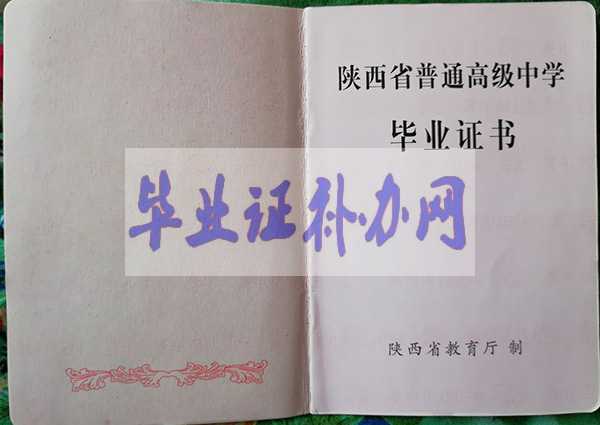 陕西省普通高级中学
毕业证书
毕业证补办网
陕西省教育厅 制